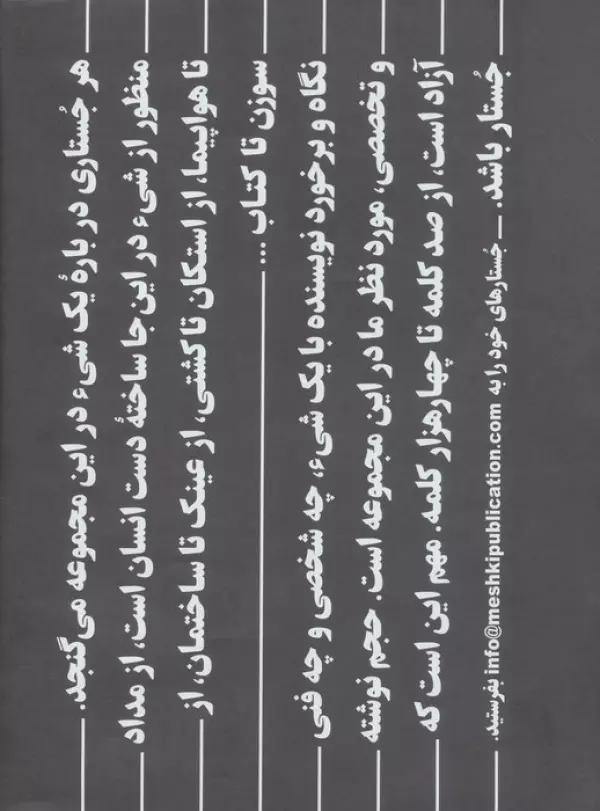 هر جُستاری در بارهٔ یک شیء در این مجموعه می‌گنجد.
منظور از شیء در این جا ساختهٔ دست انسان است، از مداد
تا هواپیما، از استکان تا کشتی، از عینک تا ساختمان، از
سوزن تا کتاب ...
نگاه و برخورد نویسنده با یک شیء، چه شخصی و چه فنی
و تخصصی، مورد نظر ما در این مجموعه است. حجم نوشته
آزاد است، از صد کلمه تا چهار هزار کلمه. مهم این است که
جُستار باشد. — جُستارهای خود را به info@meshkipublication.com بفرستید.